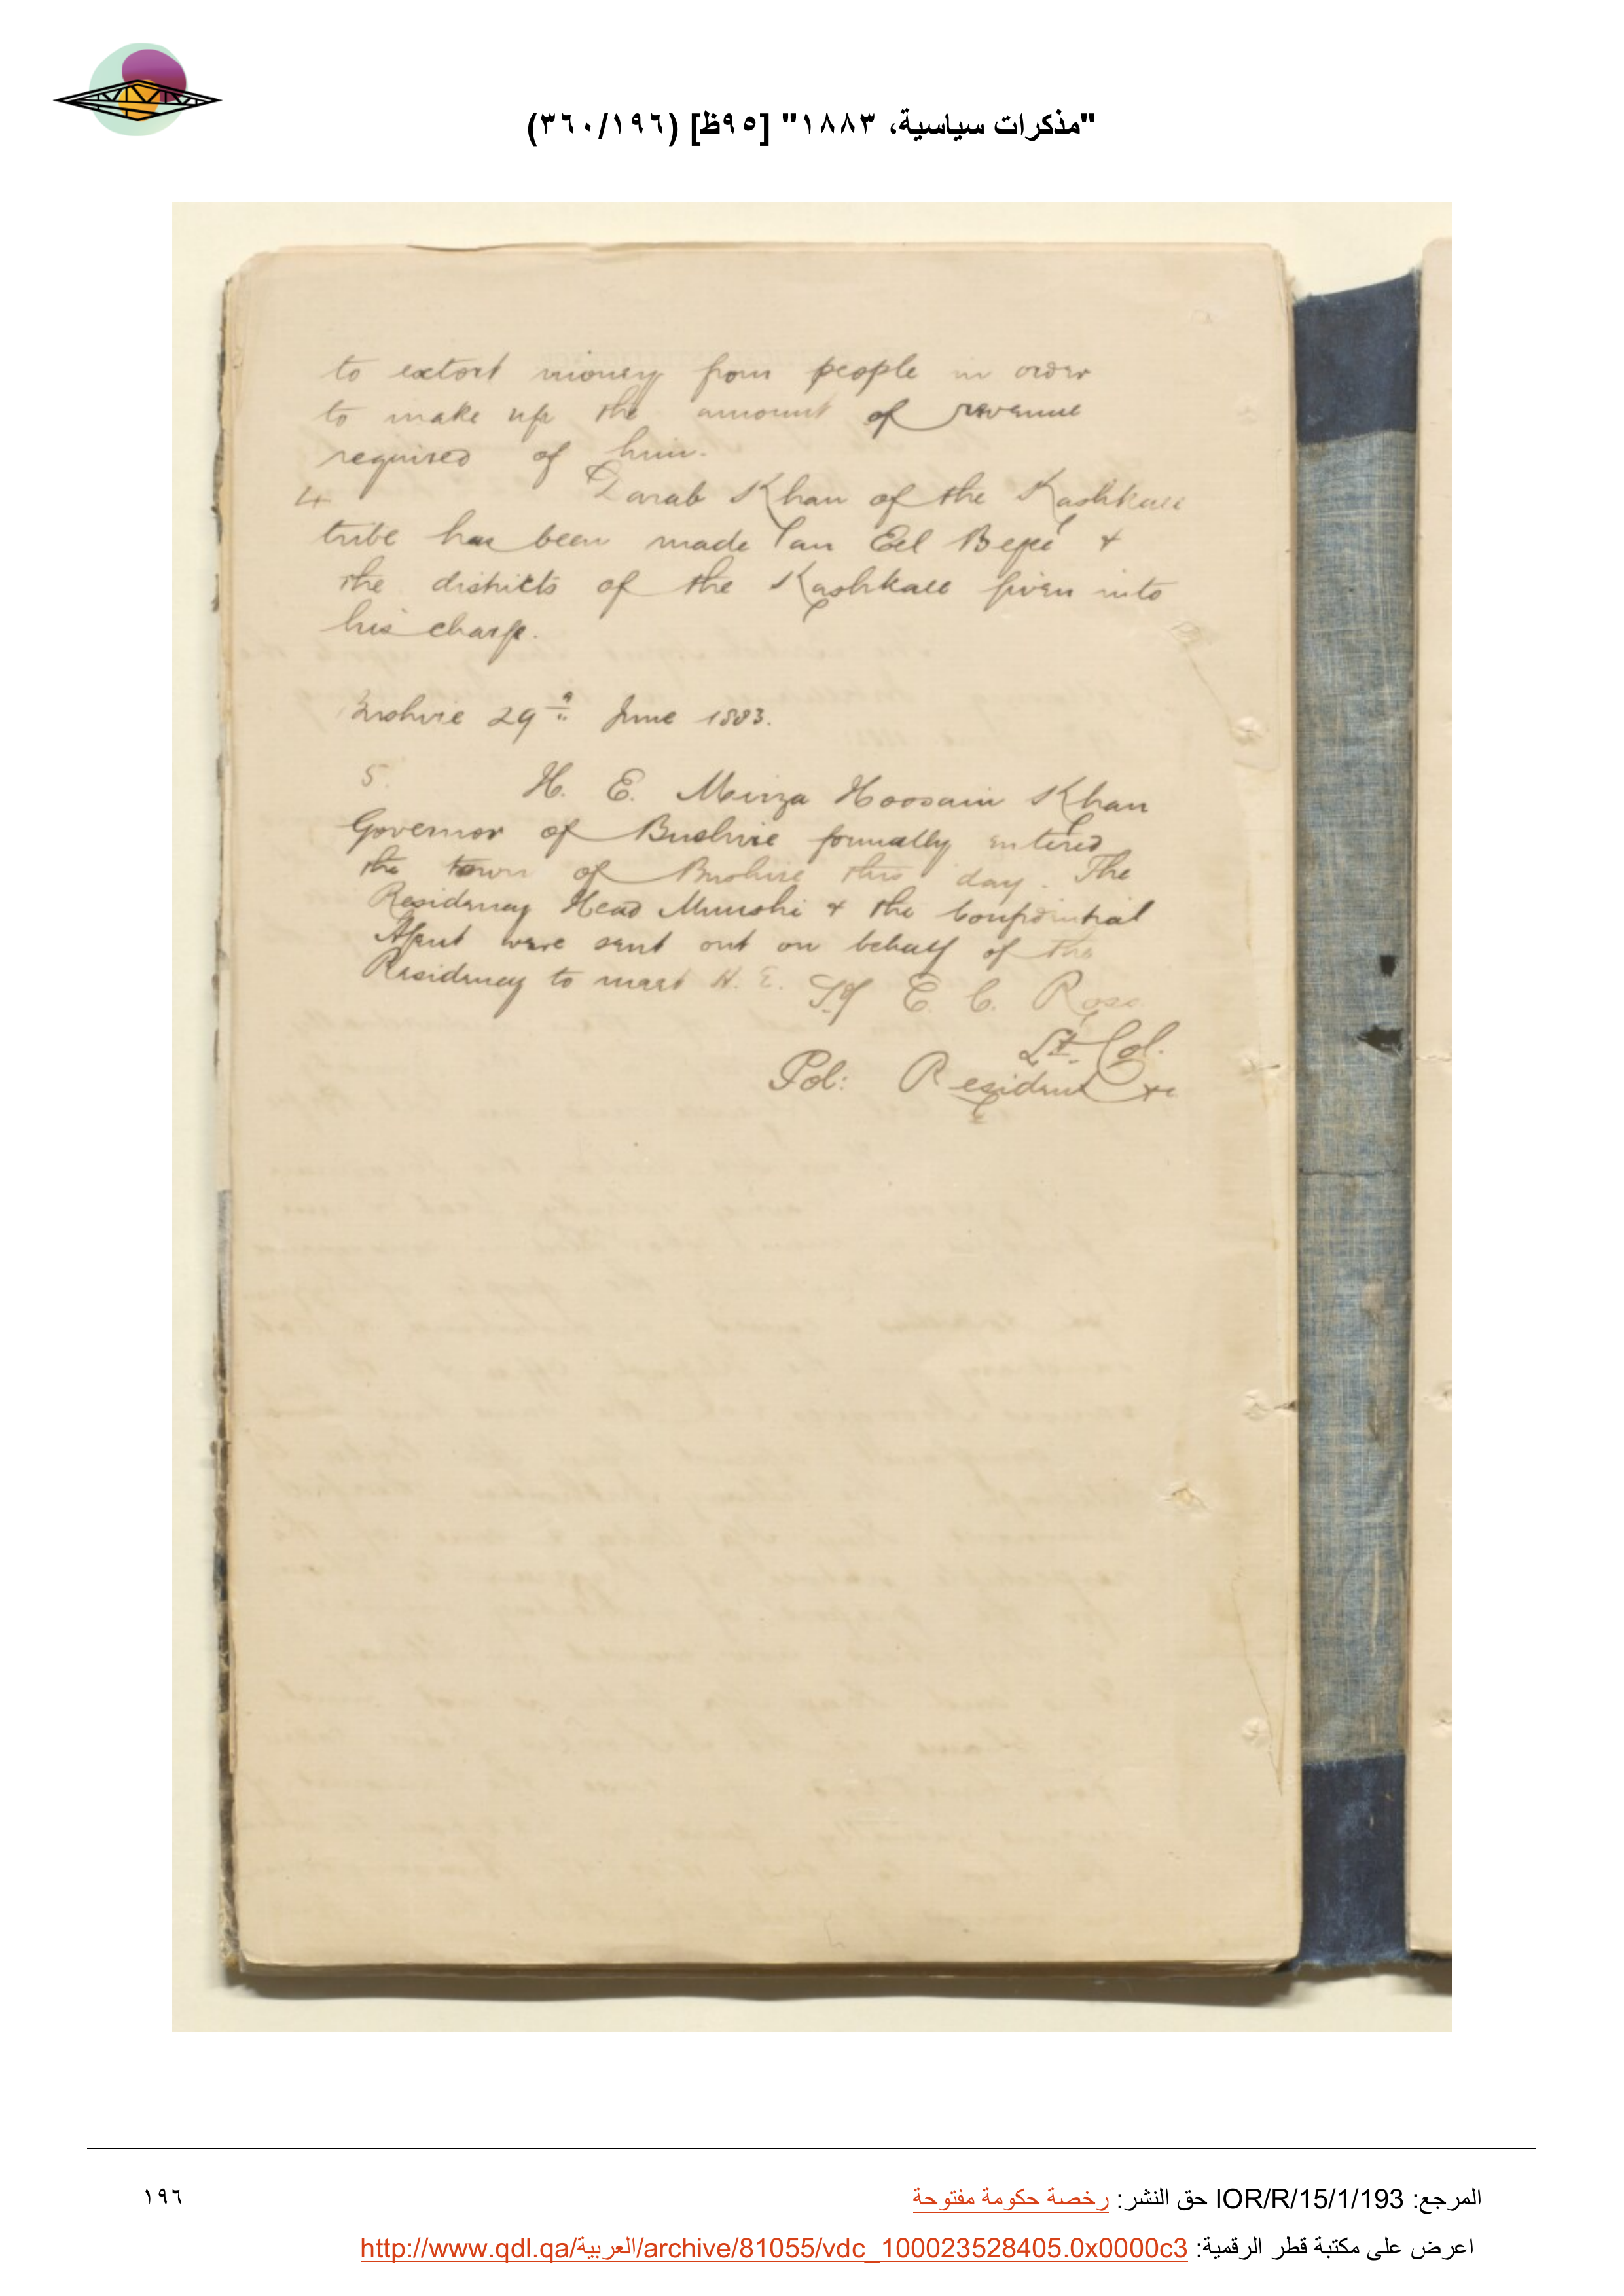 "مذكرات سياسية، ١٨٨٣" [٩٥ظ] (٣٦٠/١٩٦)
to extort money from people in order
to make up the amount of revenue
required of him.
4 Darab Khan of the Kashkaee
tribe has been made an Eel Begi &
the districts of the Kashkaee given into
his charge.
Bushire 29th June 1883.
5. H. E. Mirza Hoosain Khan
Governor of Bushire formally entered
the town of Bushire this day. The
Residency Head Munshi & the Confidential
Agent were sent out on behalf of the
Residency to meet H. E.
E. C. Ross
Lt. Col.
Pol: Resident &c
المرجع: IOR/R/15/1/193 حق النشر: رخصة حكومة مفتوحة
١٩٦
اعرض على مكتبة قطر الرقمية: http://www.qdl.qa/العربية/archive/81055/vdc_100023528405.0x0000c3